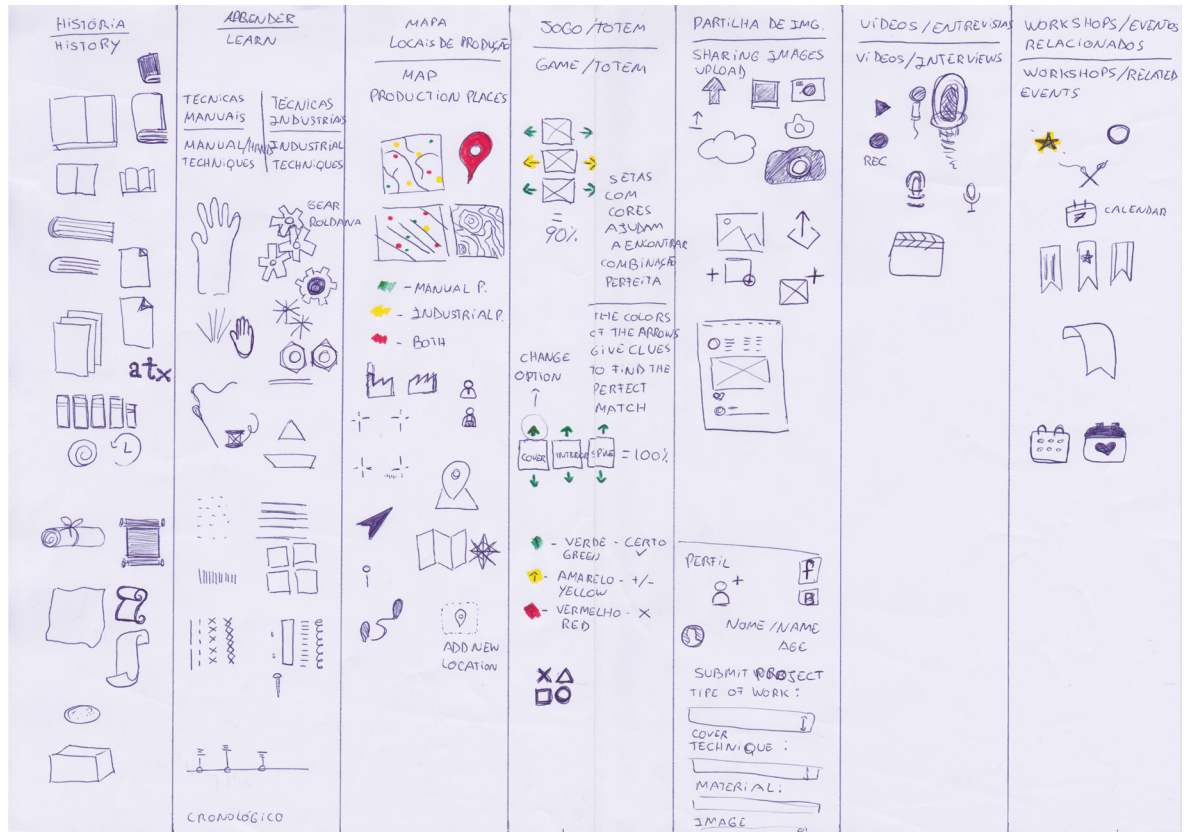 HISTÓRIA
HISTORY
atx
APRENDER
LEARN
TECNICAS
MANUAIS
MANUAL/HAND
TECHNIQUES
TECNICAS
INDUSTRIAIS
INDUSTRIAL
TECHNIQUES
GEAR
ROLDANA
CRONOLÓGICO
MAPA
LOCAIS DE PRODUÇÃO
MAP
PRODUCTION PLACES
- MANUAL P.
- INDUSTRIAL P.
- BOTH
ADD NEW
LOCATION
JOGO/TOTEM
GAME/TOTEM
= 90%
SETAS
COM
CORES
AJUDAM
A ENCONTRAR
COMBINAÇÃO
PERFEITA
THE COLORS
OF THE ARROWS
GIVE CLUES
TO FIND THE
PERFECT
MATCH
CHANGE
OPTION
COVER INTERIOR SPINE = 100%
- VERDE - CERTO
GREEN
- AMARELO - +/-
YELLOW
- VERMELHO - X
RED
PARTILHA DE IMG.
SHARING IMAGES
UPLOAD
PERFIL
f
B
NOME/NAME
AGE
SUBMIT PROJECT
TIPE OF WORK:
COVER
TECHNIQUE:
MATERIAL:
IMAGE
VÍDEOS/ENTREVISTAS
VÍDEOS/INTERVIEWS
REC
WORKSHOPS/EVENTOS
RELACIONADOS
WORKSHOPS/RELATED
EVENTS
7
CALENDAR